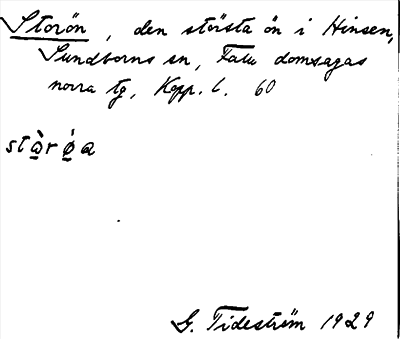 Storön, den största ön i Hinsen,
Sundborns sn, Falu domsagas
norra tg, Kopp. l. 60
stὰ̱rǿ̱a
G. Tideström 1929